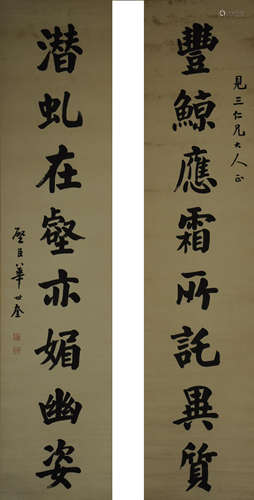 豐鯨應霜所託異質
見三仁兄大人正
潜虬在壑亦媚幽姿
璧臣華世奎